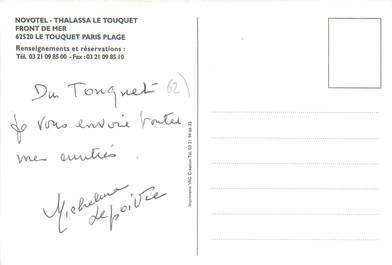 NOVOTEL - THALASSA LE TOUQUET
FRONT DE MER
62520 LE TOUQUET PARIS PLAGE
Renseignements et réservations :
Tél. 03 21 09 85 00 - Fax : 03 21 09 85 10
Du Touquet 62)
Je vous envoie toutes
mes amitiés.
Micheline
Lepoivre
Imprimerie VAG Création Tél. 03 21 94 66 33